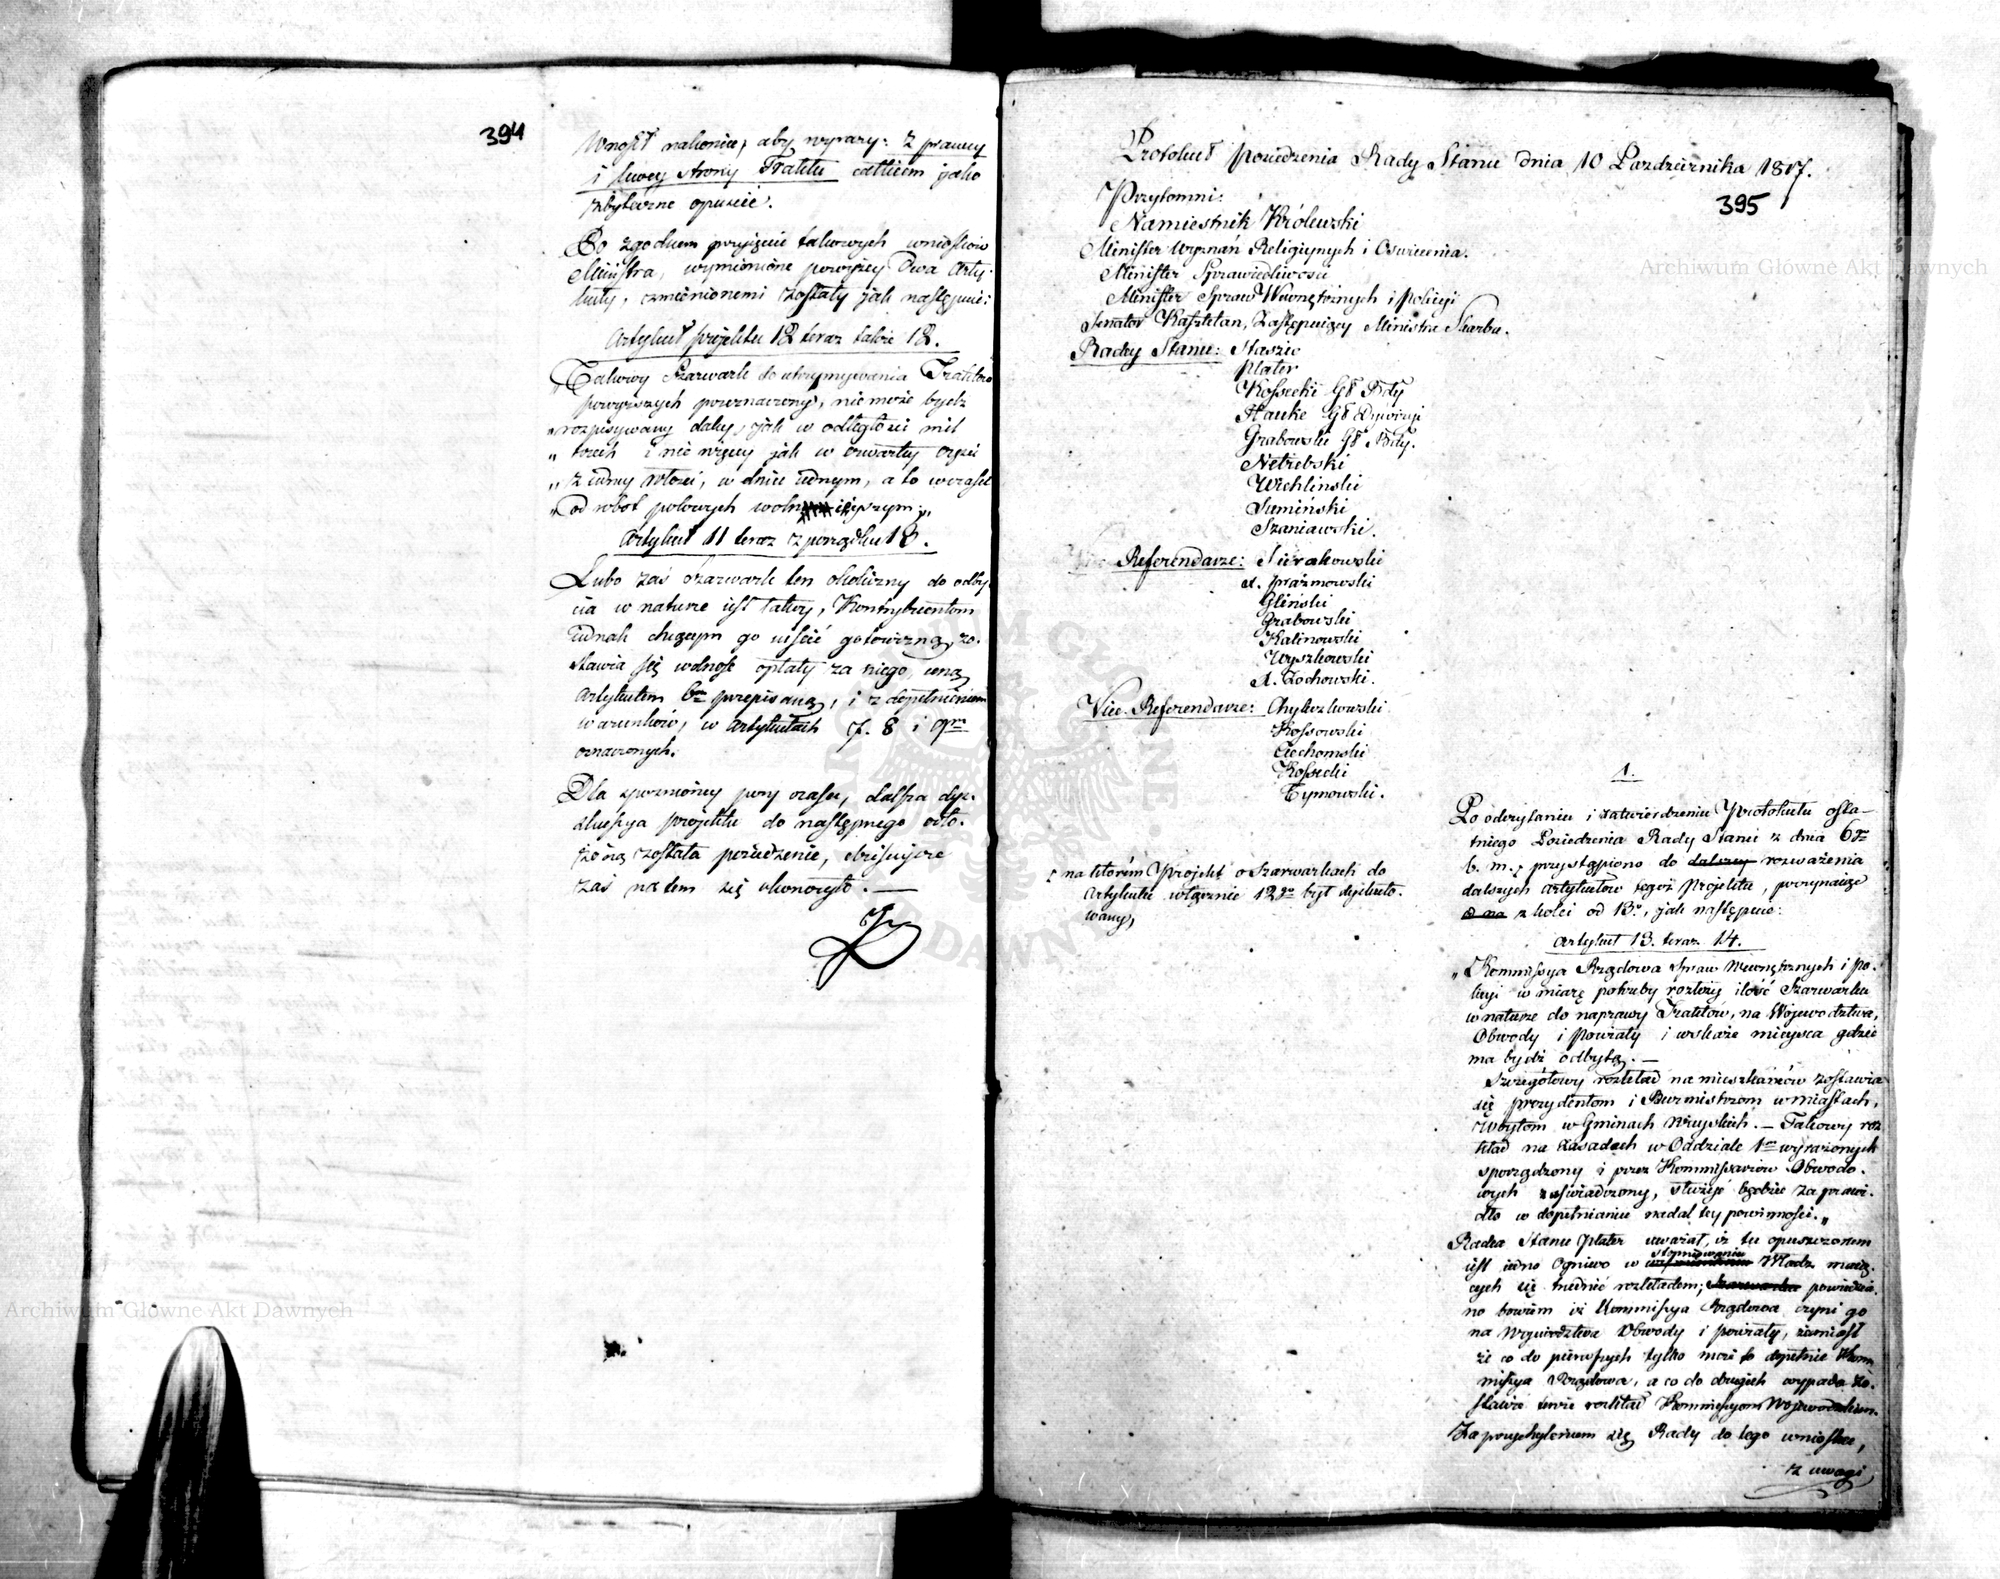 394
Wnosił nakoniec, aby wyrazy: z prawey
i lewey strony Traktu całkiem jako
zbyteczne opuścić.
Po zgodnem przyięciu takowych wniosków
Ministra, wymienione powyżey dwa Arty-
kuły, zmienionemi zostały jak następuie:
Artykuł projektu 12 teraz także 12.
„Takowy Szarwark do utrzymywania Traktów
powyższych przeznaczony, nie może bydź
„rozpisywany daley, jak w odległości mil
„trzech i nie więcey jak w czwartey części
„z całey ilości, w dniu jednym, a to w czasie
„od robot polowych wolnieyszym„
Artykuł 11 teraz z porządku 13.
Lubo zaś Szarwark ten okoliczny do odby-
cia w naturze iest łatwy, Kontrybuentom
iednak chcącym go uiścić gotowizną, zo-
stawia się wolność opłaty za niego, ceną
Artykułem 6m przepisaną, i z dopełnieniem
warunków, w Artykułach 7. 8 i 9m
oznaczonych.
Dla spóźnioney pory czasu, dalsza dys-
kussya projektu do następnego odło-
żoną została posiedzenie, obecne
zaś na tem się ukończyło. —
Protokuł Posiedzenia Rady Stanu dnia 10 Pazdziernika 1817.
395
Przytomni:
Namiestnik Królewski
Minister Wyznań Religiynych i Oświecenia.
Minister Sprawiedliwości
Minister Spraw Wewnętrznych i Policyi
Senator Kasztelan, Zastępuiący Ministra Skarbu.
Radcy Stanu: Staszic
Plater
Kossecki Gł Bdy
Hauke Gł Dywizyi
Grabowski Gł Bdy.
Netrebski
Wichlinski
Sumiński
Szaniawski.
Referendarze: Sierakowski
X. Prażmowski
Gliński
Grabowski
Kalinowski
Wyszkowski
X. Zochowski.
Vice-Referendarze: Chyliczkowski
Kossowski
Ciechomski
Kossecki
Tymowski.
1.
Po odczytaniu i zatwierdzeniu Protokułu osta-
tniego Posiedzenia Rady Stanu z dnia 6go
b. m. przystąpiono do dalszey rozważenia
dalszych artykułów tegoż Projektu, poczynaiąc
z kolei od 13o, jak następuie:
na którém Projekt o Szarwarkach do
Artykułu włącznie 12go był dyskuto-
wany,
Artykuł 13. teraz 14.
„Kommissya Rządowa Spraw Wewnętrznych i Po-
licyi w miarę potrzeby rozłoży ilość Szarwarku
w naturze do naprawy Traktów, na Województwa,
Obwody i Powiaty i wskaże mieysca gdzie
ma bydź odbytą. —
Szczegółowy rozkład na mieszkańców zostawia
się Prezydentom i Burmistrzom w miastach,
Wóytom w Gminach Wieyskich. — Takowy roz
kład na zasadach w Oddziale 1m wyrażonych
sporządzony i przez Kommissarzów Obwodo-
wych zaświadczony, służyć będzie za prawi-
dło w dopełnianiu nadal tey powinności.„
Radca Stanu Plater uważał, iż tu opuszczonem
iest iedno Ogniwo w stopniowaniu Władz maią-
cych się trudnić rozkładem; powiedzia-
no bowiem iż Kommissya Rządowa czyni go
na Województwa Obwody i Powiaty, zamiast
że co do pierwszych tylko może to dopełnić Kom
missya Rządowa, a co do drugich wypada zo-
stawić rozkład Kommissyom Wojewódzkim.
Za przychyleniem się Rady do tego wniosku,
z uwagi
Archiwum Główne Akt Dawnych
Archiwum Główne Akt Dawnych